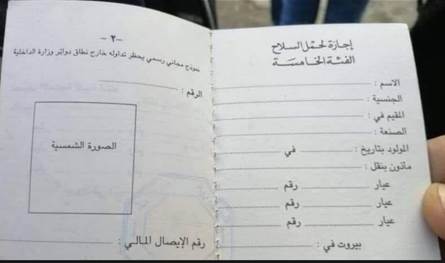 إجازة لحمل السلاح
الفئة الخامسة
الاسم :
الجنسية :
المقيم في :
الصنعة :
المولود بتاريخ : في
مأذون بنقل :
عيار رقم
عيار رقم
عيار رقم
بيروت في :
-٢-
نموذج مجاني رسمي يحظر تداوله خارج نطاق دوائر وزارة الداخلية
الرقم :
الصورة الشمسية
رقم الإيصال المالي :